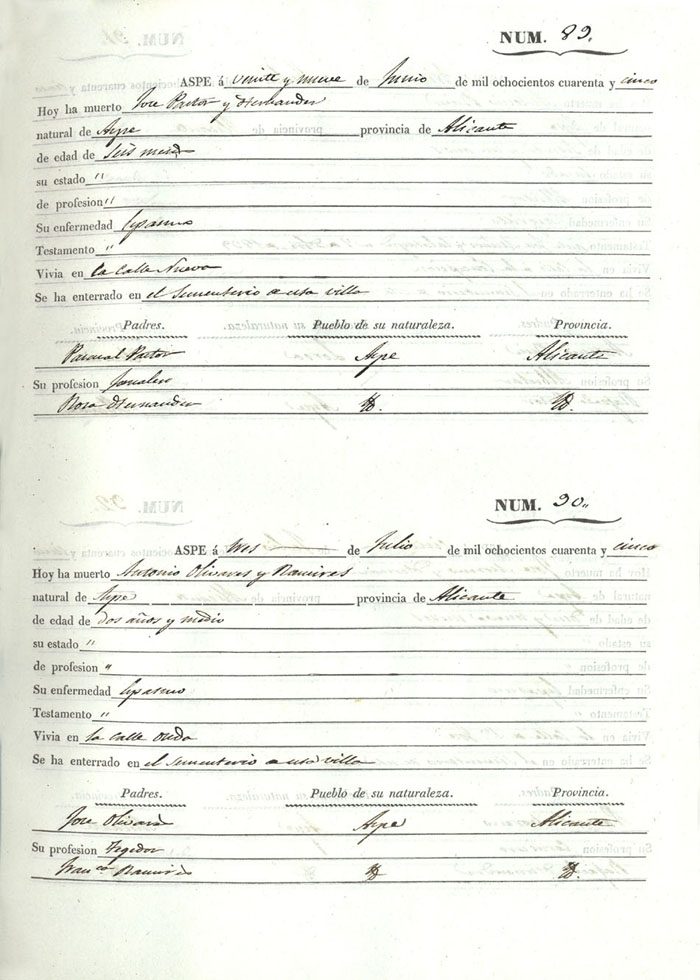 NUM. 89.
ASPE á veinte y nueve de Junio de mil ochocientos cuarenta y cinco
Hoy ha muerto Jose Pastor y Hernandez
natural de Aspe provincia de Alicante
de edad de seis meses
su estado "
de profesion "
Su enfermedad Espasmo
Testamento "
Vivia en la calle Nueva
Se ha enterrado en el Sementerio de esta villa
Padres. Pueblo de su naturaleza. Provincia.
Pascual Pastor Aspe Alicante
Su profesion Jornalero
Rosa Hernandez Id. Id.
NUM. 90.
ASPE á tres de Julio de mil ochocientos cuarenta y cinco
Hoy ha muerto Antonio Olivares y Ramires
natural de Aspe provincia de Alicante
de edad de dos años y medio
su estado "
de profesion "
Su enfermedad Espasmo
Testamento "
Vivia en la calle Onda
Se ha enterrado en el Sementerio de esta villa
Padres. Pueblo de su naturaleza. Provincia.
Jose Olivares Aspe Alicante
Su profesion Tegedor
Franca Ramires Id. Id.